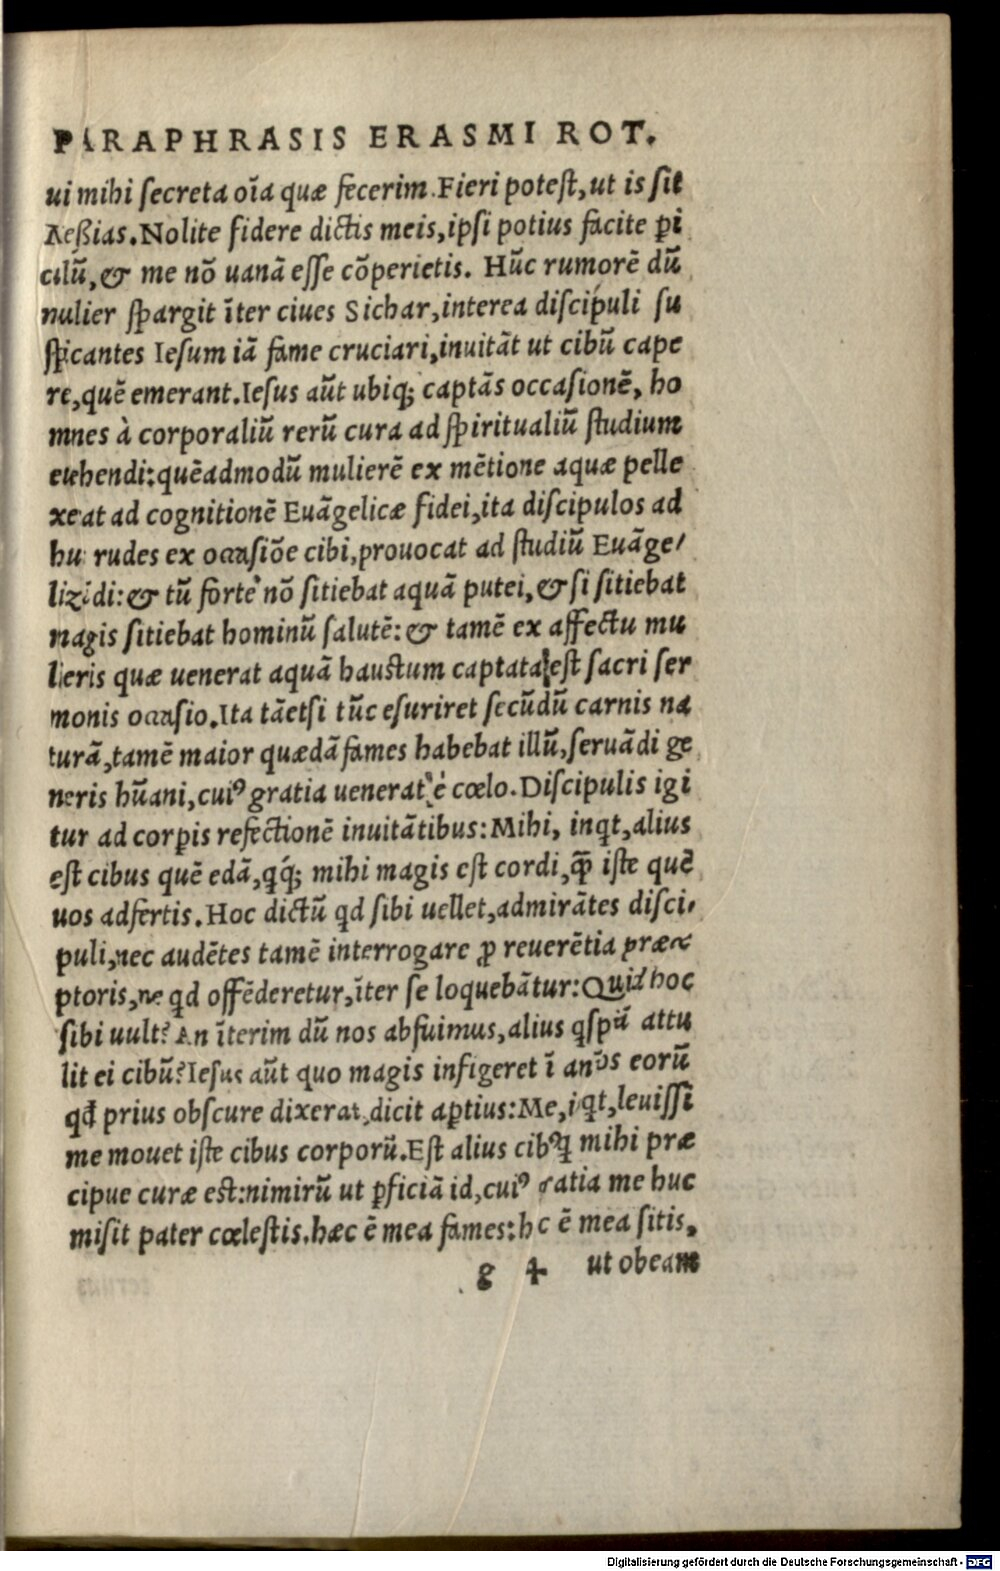 PARAPHRASIS ERASMI ROT.
ui mihi ſecreta oīa quæ fecerim. Fieri poteſt, ut is ſit
Meßias. Nolite fidere dictis meis, ipſi potius facite ꝑi
culū, & me nō uanā eſſe cōperietis. Hūc rumorē dū
mulier ſpargit īter ciues Sichar, interea diſcipuli ſu
ſpicantes Ieſum iā fame cruciari, inuitāt ut cibū cape
re, quē emerant. Ieſus aūt ubiq; captās occaſionē, ho
mnes à corporaliū rerū cura ad ſpiritualiū ſtudium
euehendi: quēadmodū mulierē ex mētione aquæ pelle
xerat ad cognitionē Euāgelicæ fidei, ita diſcipulos ad
huc rudes ex occaſiōe cibi, prouocat ad ſtudiū Euāge/
lizādi: & tū forte nō ſitiebat aquā putei, & ſi ſitiebat
magis ſitiebat hominū ſalutē: & tamē ex affectu mu
lieris quæ uenerat aquā hauſtum captata eſt ſacri ſer
monis occaſio. Ita tāetſi tūc eſuriret ſecūdū carnis na
turā, tamē maior quædā fames habebat illū, ſeruādi ge
neris hūani, cuiꝰ gratia uenerat è cœlo. Diſcipulis igi
tur ad corꝑis refectionē inuitātibus: Mihi, inqt, alius
eſt cibus quē edā, qq́; mihi magis eſt cordi, q̄ꝫ iſte quē
uos adfertis. Hoc dictū qd ſibi uellet, admirātes diſci-
puli, nec audētes tamē interrogare ꝓ reuerētia præce
ptoris, ne qd offēderetur, īter ſe loquebātur: Quid hoc
ſibi uult? An īterim dū nos abfuimus, alius qſpiā attu
lit ei cibū? Ieſus aūt quo magis infigeret ī aīos eorū
qđ prius obſcure dixerat, dicit aꝑtius: Me, iqt, leuiſſi
me mouet iſte cibus corporū. Eſt alius cibꝰ q mihi præ
cipue curæ eſt: nimirū ut ꝑficiā id, cuiꝰ gratia me huc
miſit pater cœleſtis. hæc ē mea fames: hæc ē mea ſitis,
g 4 ut obeam
ternus
Digitalisierung gefördert durch die Deutsche Forschungsgemeinschaft - DFG